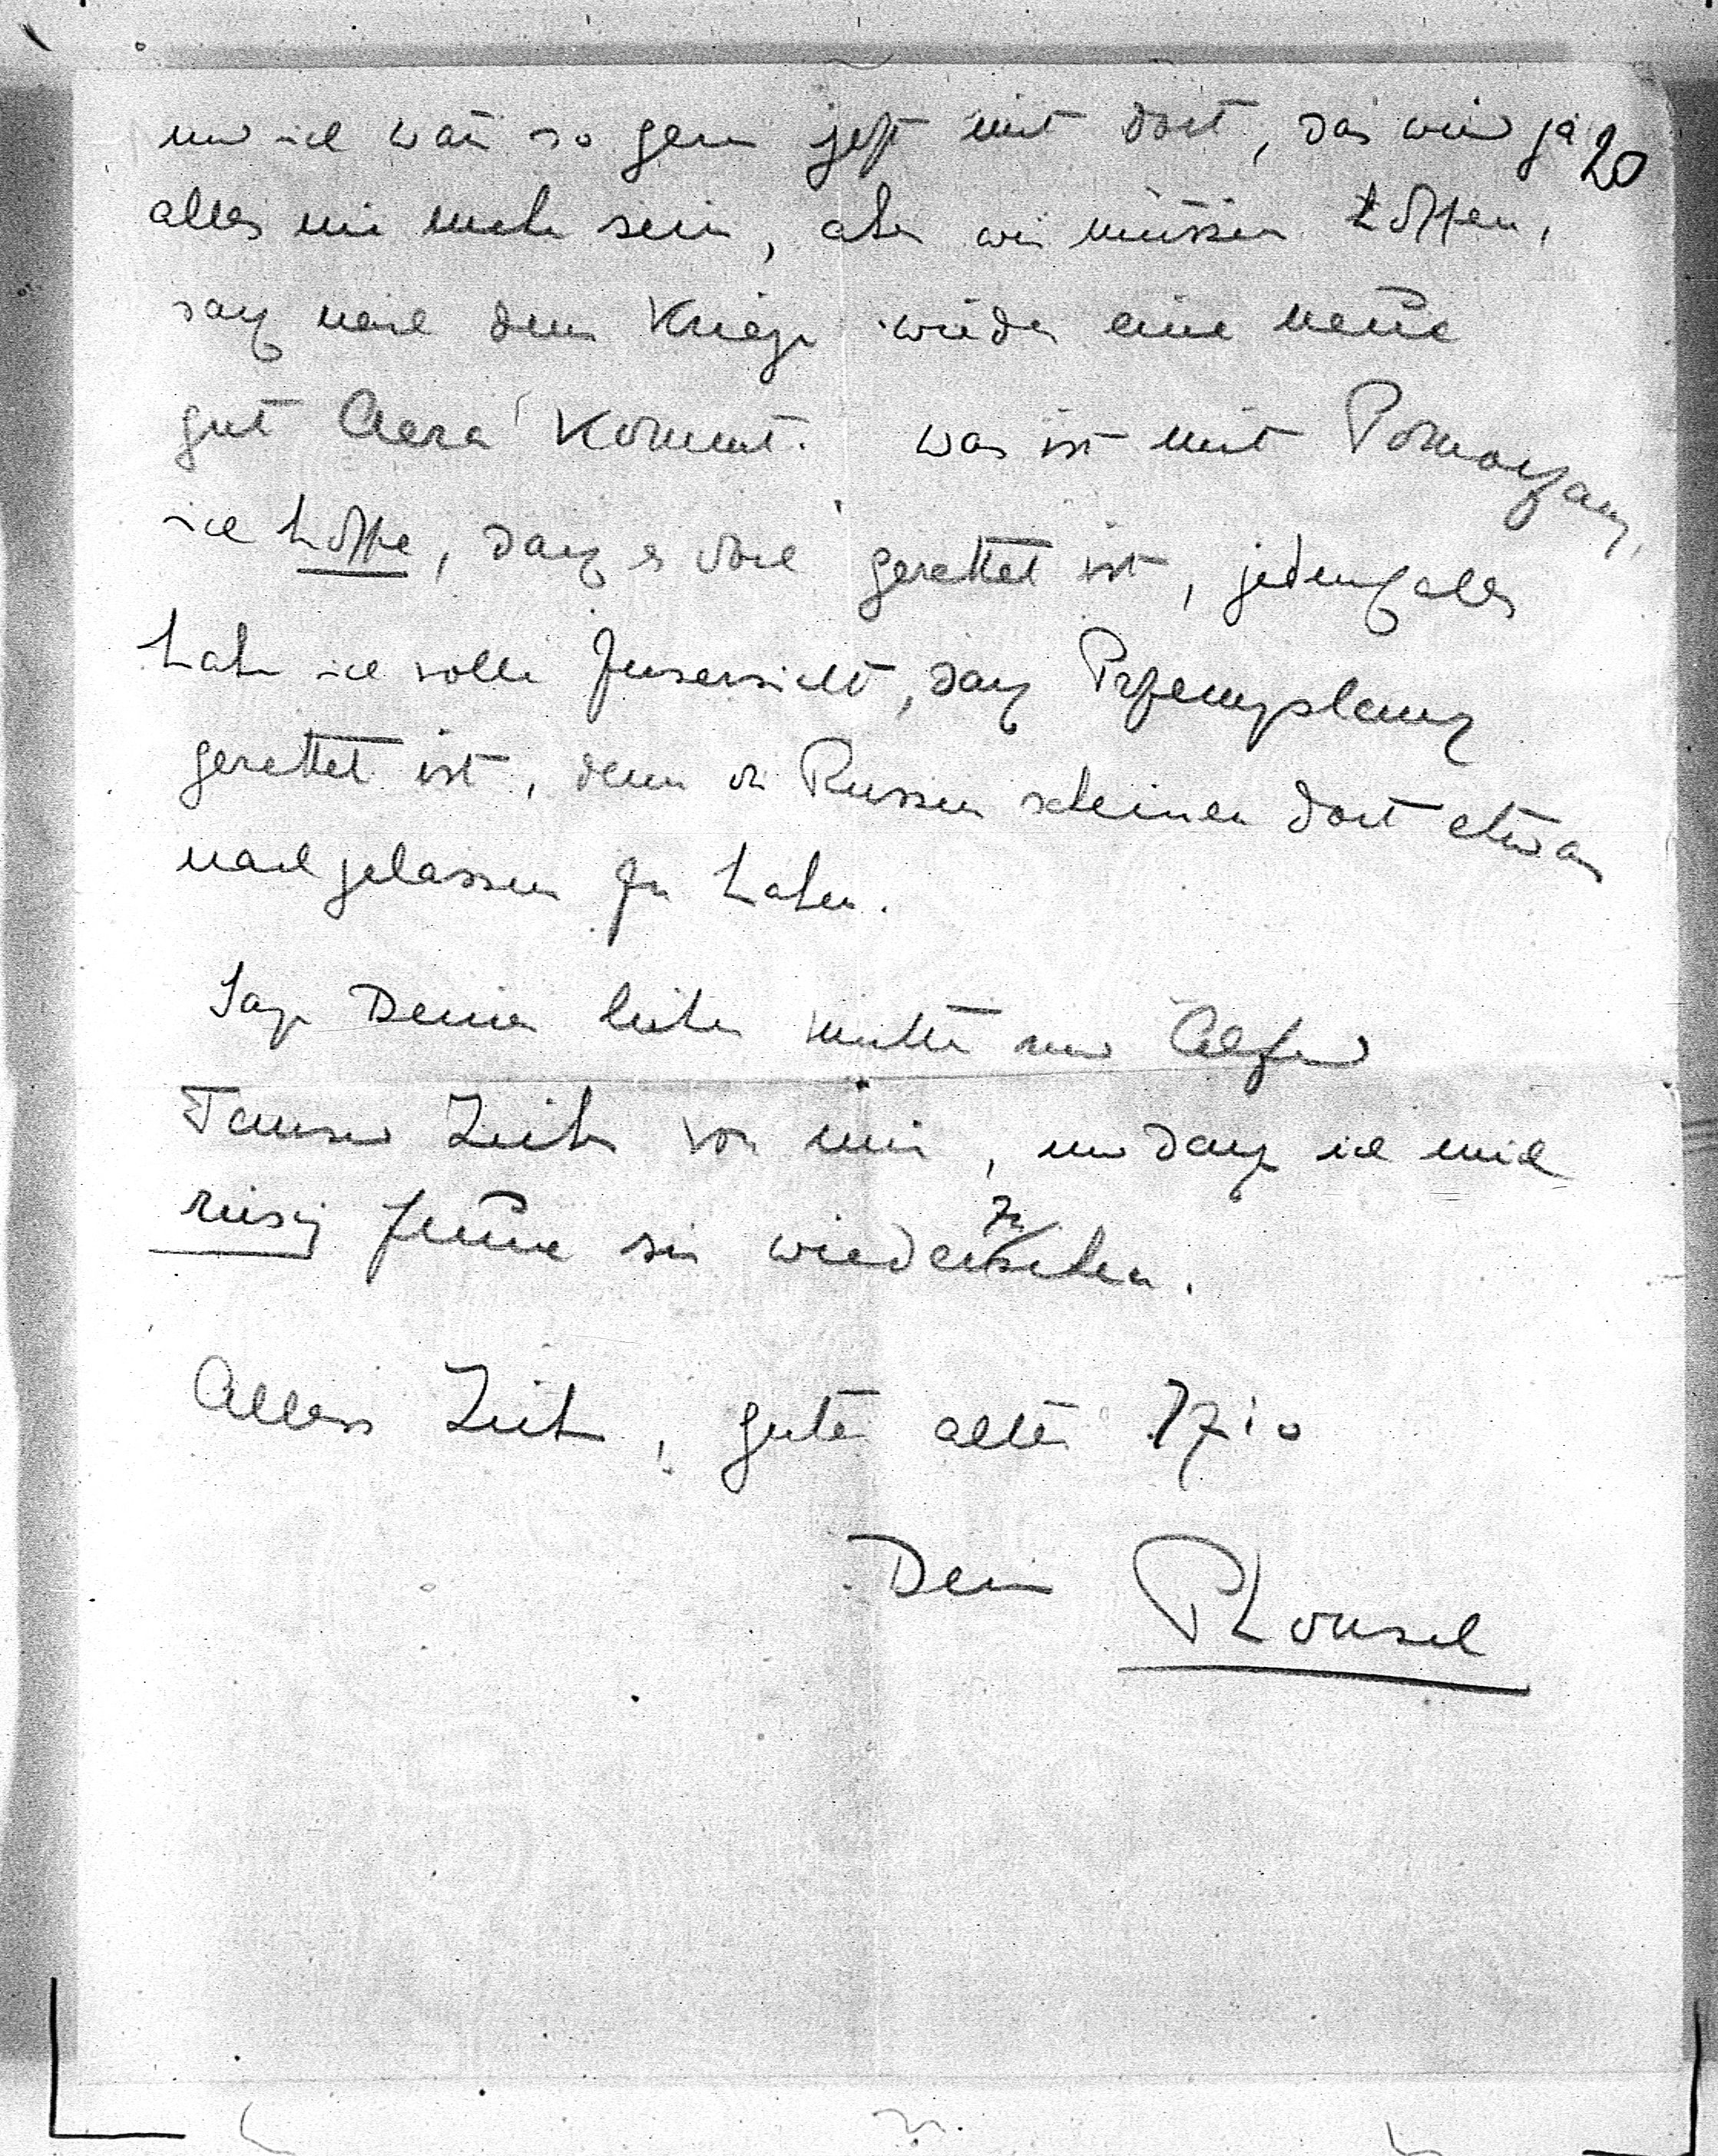 und ich wär so gern jetzt mit dort, das wird ja 20
alles nie mehr sein, aber wir müssen hoffen,
daß nach dem Kriege wieder eine neue
gute Aera kommt. Was ist mit Pomorzany,
ich hoffe, daß es doch gerettet ist, jedenfalls
habe ich volle Zuversicht, daß Przemyslany
gerettet ist, denn die Russen scheinen dort etwas
nachgelassen zu haben.
Sage Deiner lieben Mutter und Alfred
Tausend Liebes von mir, und daß ich mich
riesig freue sie wiederzusehen.
Alles Liebe, guter alter Izio
Dein